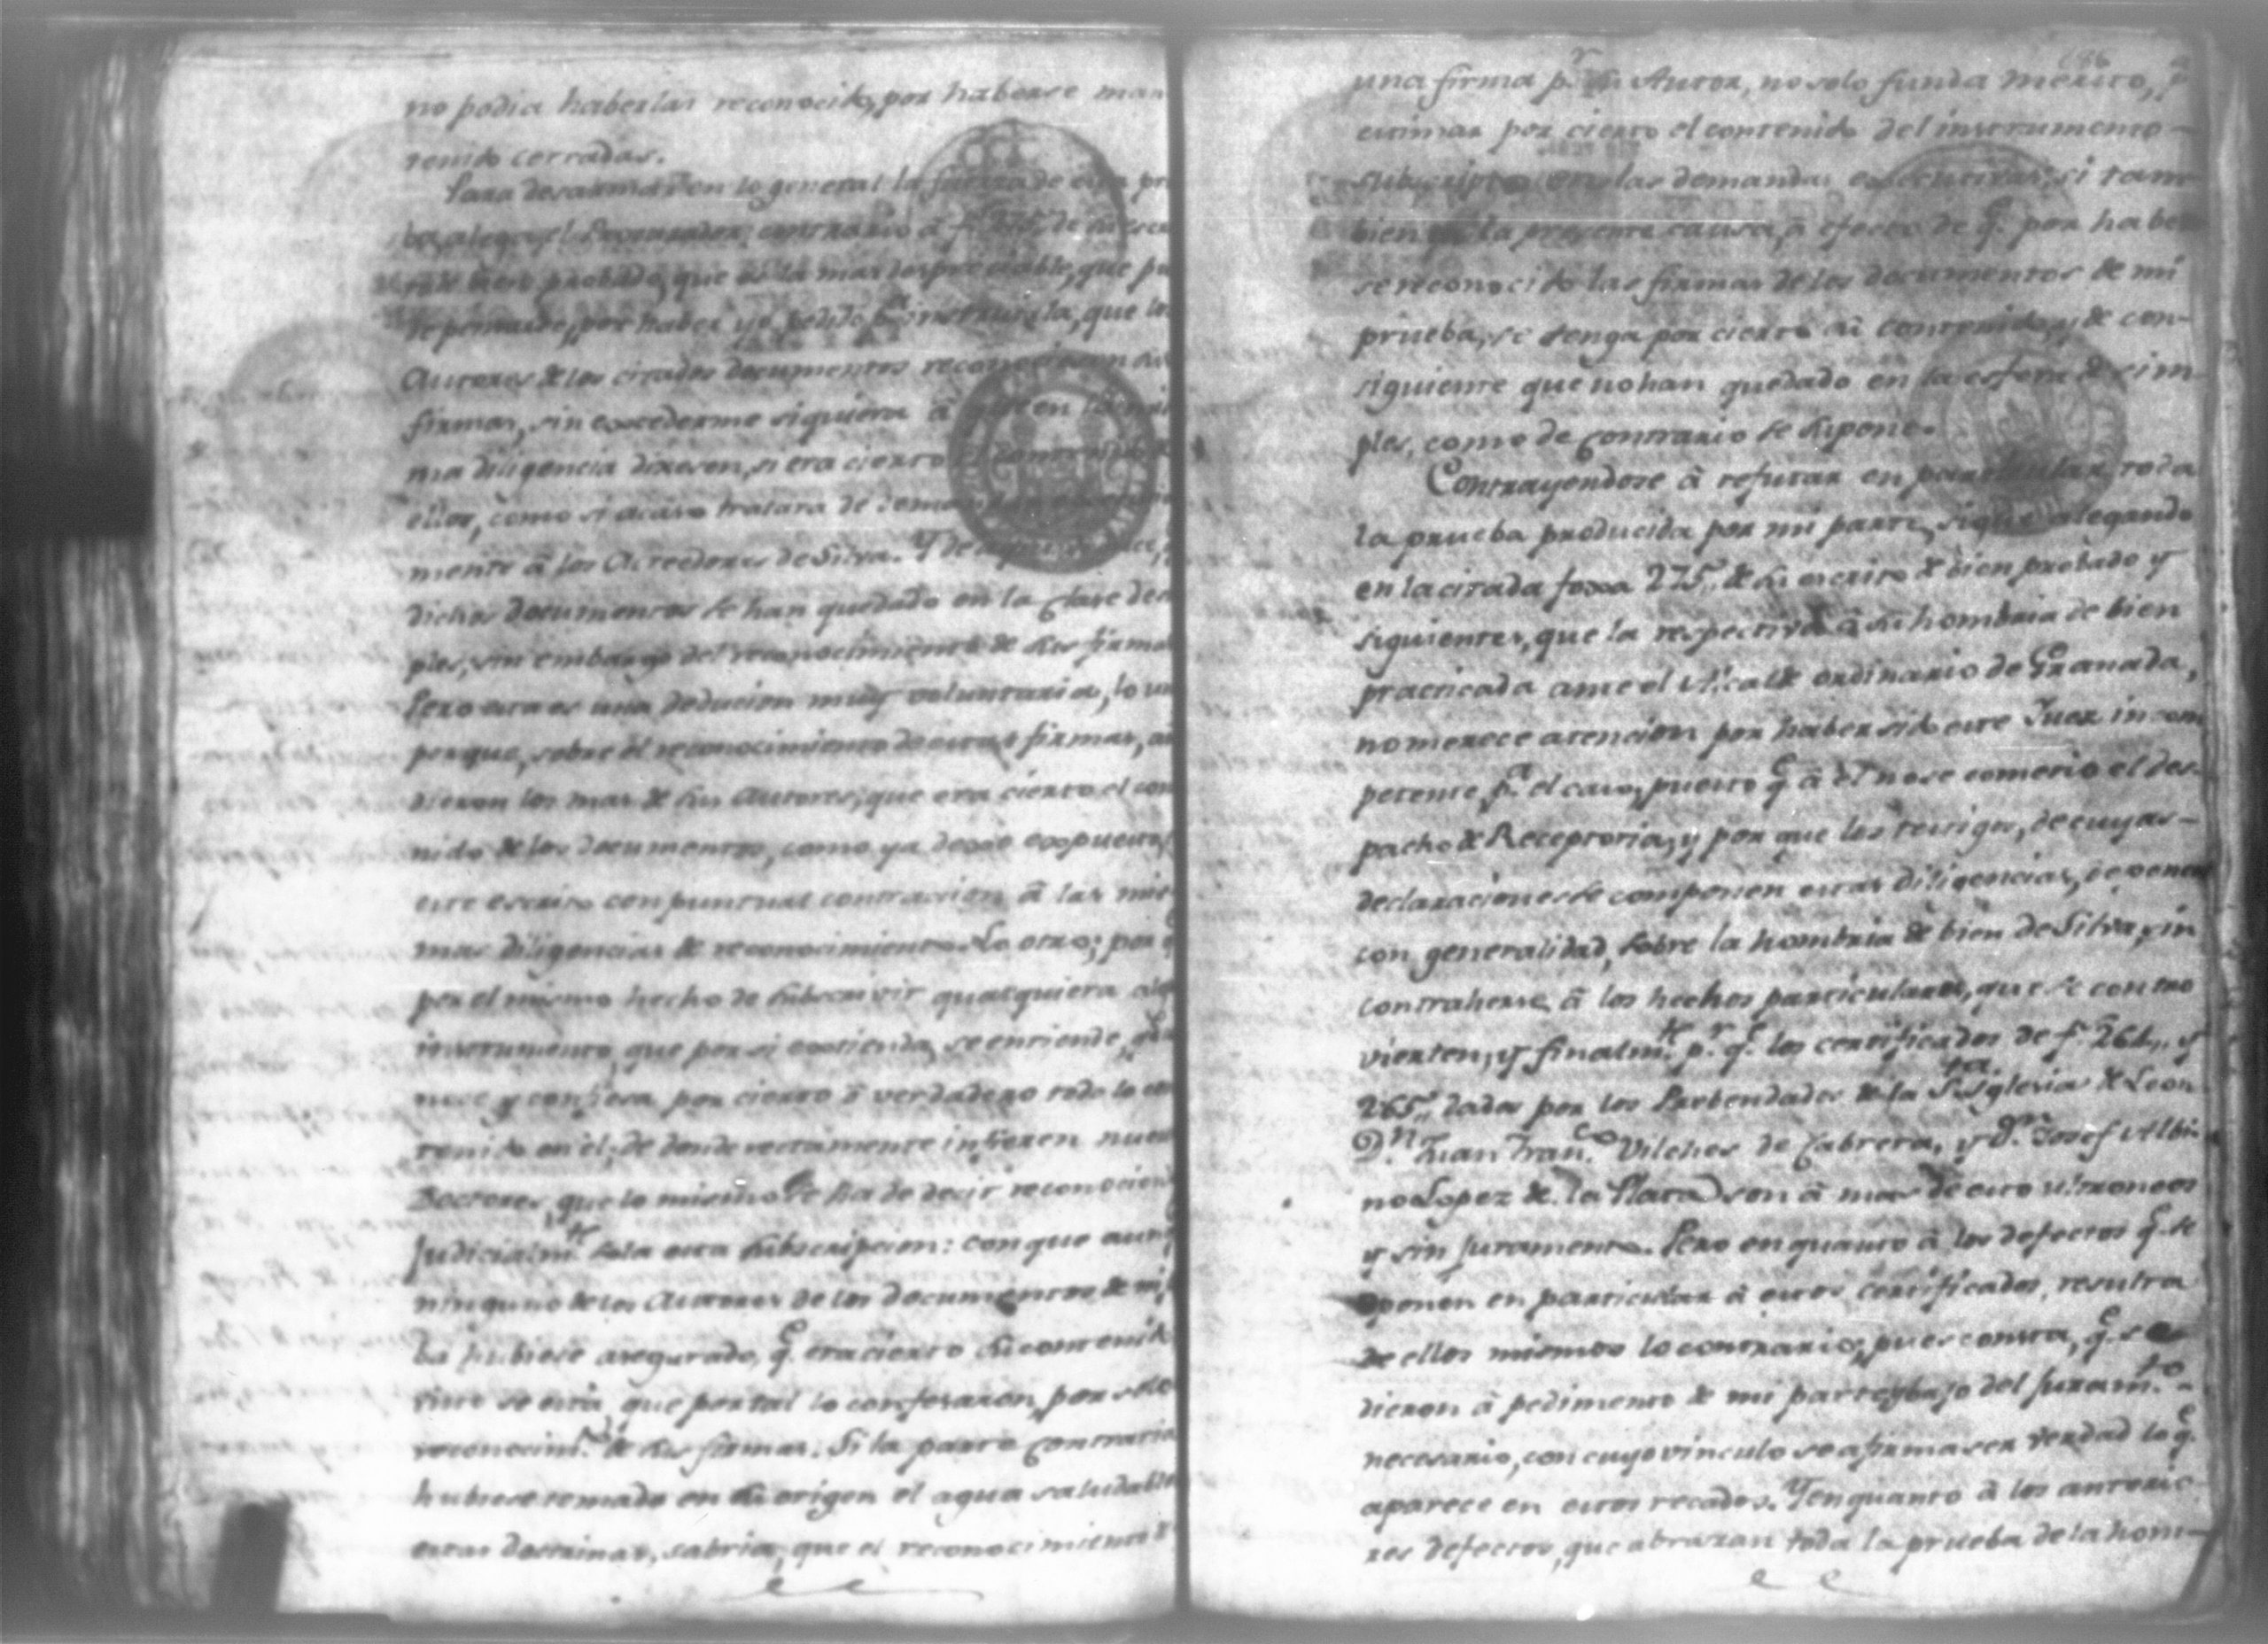 no podia haberlas reconocido, por haberse man
tenido cerradas.
Para desarmar en lo general la fuerza de esta pr
ba, alega el Procurador contrario à f de su escri
de bien probado, que es la mas despreciable, que pu
de pensarse, por haber yo pedido p.ª instruirla, que los
Autores de los citados documentos reconociesen sus
firmas, sin excederme siquiera â que en la mis
ma diligencia dixesen, si era cierto el contenido de
ellos, como si acaso tratara de
mente â los Acreedores de Silva. Y de aqui
dichos documentos se han quedado en la clase de si
ples, sin embargo del reconocimiento de sus firmas
Pero esta es una deducion muy voluntaria, lo un
porque, sobre el reconocimiento de estas firmas, a
dieron los mas de sus Autores, que era cierto el con
nido de los documentos, como ya dexo expuesto
este escrito con puntual contraccion â las mis
mas diligencias de reconocimiento. Lo otro; por q
por el mismo hecho de subscrivir qualquiera alg
instrumento, que por si extienda, se entiende, q
noce y confiesa por cierto ô verdadero todo lo con
tenido en el; de donde rectamente infieren nues
Doctores, que lo mismo se ha de decir reconocien
judicialm.te sola esta subscripcion: con que aunq
ninguno de los Autores de los documentos de mi p
ba hubiese asegurado, q.e era cierto su contenido
visto se está, que por tal lo confesaron, por solo
reconocim.to de sus firmas. Si la parte contraria
hubiese tomado en su origen el agua saludable
estas doctrinas, sabria, que el reconocimiento d
186
una firma p.r su Autor, no solo funda merito, p
estimar por cierto el contenido del instrumento
subscripto en las demandas executivas, si tam
bien en la presente causa, â efecto de q.e por haber
se reconocido las firmas de los documentos de mi
prueba, se tenga por cierto su contenido, y de con-
siguiente que no han quedado en la esfera de sim
ples, como de contrario se supone.
Contrayendose â refutar en particular toda
la prueba producida por mi parte, sigue alegando
en la citada foxa 275,, de su escrito de bien probado y
siguientes, que la respectiva â su hombria de bien
practicada ante el Alcalde ordinario de Granada,
no merece atencion por haber sido este Juez incom
petente p.ª el caso, puesto q.e â él no se cometio el des-
pacho de Receptoria, y por que los testigos, de cuyas
declaraciones se componen estas diligencias, deponen
con generalidad, sobre la hombria de bien de Silva, sin
contraherse â los hechos particulares, que se contro
vierten; y finalm.te p.r q.e los certificados de f.s 264,, y
265,, dados por los Prebendados de la S.ta Iglesia de Leon
D.n Juan Fran.co Vilches de Cabrera, y D.n Josef Albi
no Lopez de la Plata son â mas de esto ultroneos
y sin juramento. Pero en quanto â los defectos q.e se
oponen en particular â estos certificados, resulta
de ellos mismos lo contrario; pues consta, q.e se
dieron â pedimento de mi parte, y bajo del juram.to
necesario, con cuyo vinculo se afirma ser verdad lo q.e
aparece en estos recados. Y en quanto â los anterio
res defectos, que abrazan toda la prueba de la hom-